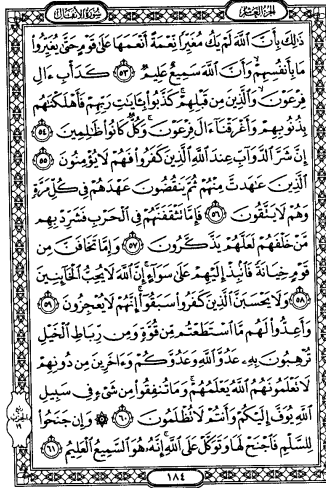 الجزء العاشر
سورة الأنفال
ذَٰلِكَ بِأَنَّ ٱللَّهَ لَمْ يَكُ مُغَيِّرًا نِّعْمَةً أَنْعَمَهَا عَلَىٰ قَوْمٍ حَتَّىٰ يُغَيِّرُوا۟
مَا بِأَنفُسِهِمْ وَأَنَّ ٱللَّهَ سَمِيعٌ عَلِيمٌ ٥٣ كَدَأْبِ ءَالِ
فِرْعَوْنَ وَٱلَّذِينَ مِن قَبْلِهِمْ كَذَّبُوا۟ بِـَٔايَٰتِ رَبِّهِمْ فَأَهْلَكْنَٰهُم
بِذُنُوبِهِمْ وَأَغْرَقْنَآ ءَالَ فِرْعَوْنَ وَكُلٌّ كَانُوا۟ ظَٰلِمِينَ ٥٤
إِنَّ شَرَّ ٱلدَّوَآبِّ عِندَ ٱللَّهِ ٱلَّذِينَ كَفَرُوا۟ فَهُمْ لَا يُؤْمِنُونَ ٥٥
ٱلَّذِينَ عَٰهَدتَّ مِنْهُمْ ثُمَّ يَنقُضُونَ عَهْدَهُمْ فِى كُلِّ مَرَّةٍ
وَهُمْ لَا يَتَّقُونَ ٥٦ فَإِمَّا تَثْقَفَنَّهُمْ فِى ٱلْحَرْبِ فَشَرِّدْ بِهِم
مَّنْ خَلْفَهُمْ لَعَلَّهُمْ يَذَّكَّرُونَ ٥٧ وَإِمَّا تَخَافَنَّ مِن
قَوْمٍ خِيَانَةً فَٱنۢبِذْ إِلَيْهِمْ عَلَىٰ سَوَآءٍ إِنَّ ٱللَّهَ لَا يُحِبُّ ٱلْخَآئِنِينَ
٥٨ وَلَا يَحْسَبَنَّ ٱلَّذِينَ كَفَرُوا۟ سَبَقُوٓا۟ إِنَّهُمْ لَا يُعْجِزُونَ ٥٩
وَأَعِدُّوا۟ لَهُم مَّا ٱسْتَطَعْتُم مِّن قُوَّةٍ وَمِن رِّبَاطِ ٱلْخَيْلِ
تُرْهِبُونَ بِهِۦ عَدُوَّ ٱللَّهِ وَعَدُوَّكُمْ وَءَاخَرِينَ مِن دُونِهِمْ
لَا تَعْلَمُونَهُمُ ٱللَّهُ يَعْلَمُهُمْ وَمَا تُنفِقُوا۟ مِن شَىْءٍ فِى سَبِيلِ
ٱللَّهِ يُوَفَّ إِلَيْكُمْ وَأَنتُمْ لَا تُظْلَمُونَ ٦٠ ۞ وَإِن جَنَحُوا۟
لِلسَّلْمِ فَٱجْنَحْ لَهَا وَتَوَكَّلْ عَلَى ٱللَّهِ إِنَّهُۥ هُوَ ٱلسَّمِيعُ ٱلْعَلِيمُ ٦١
١٨٤